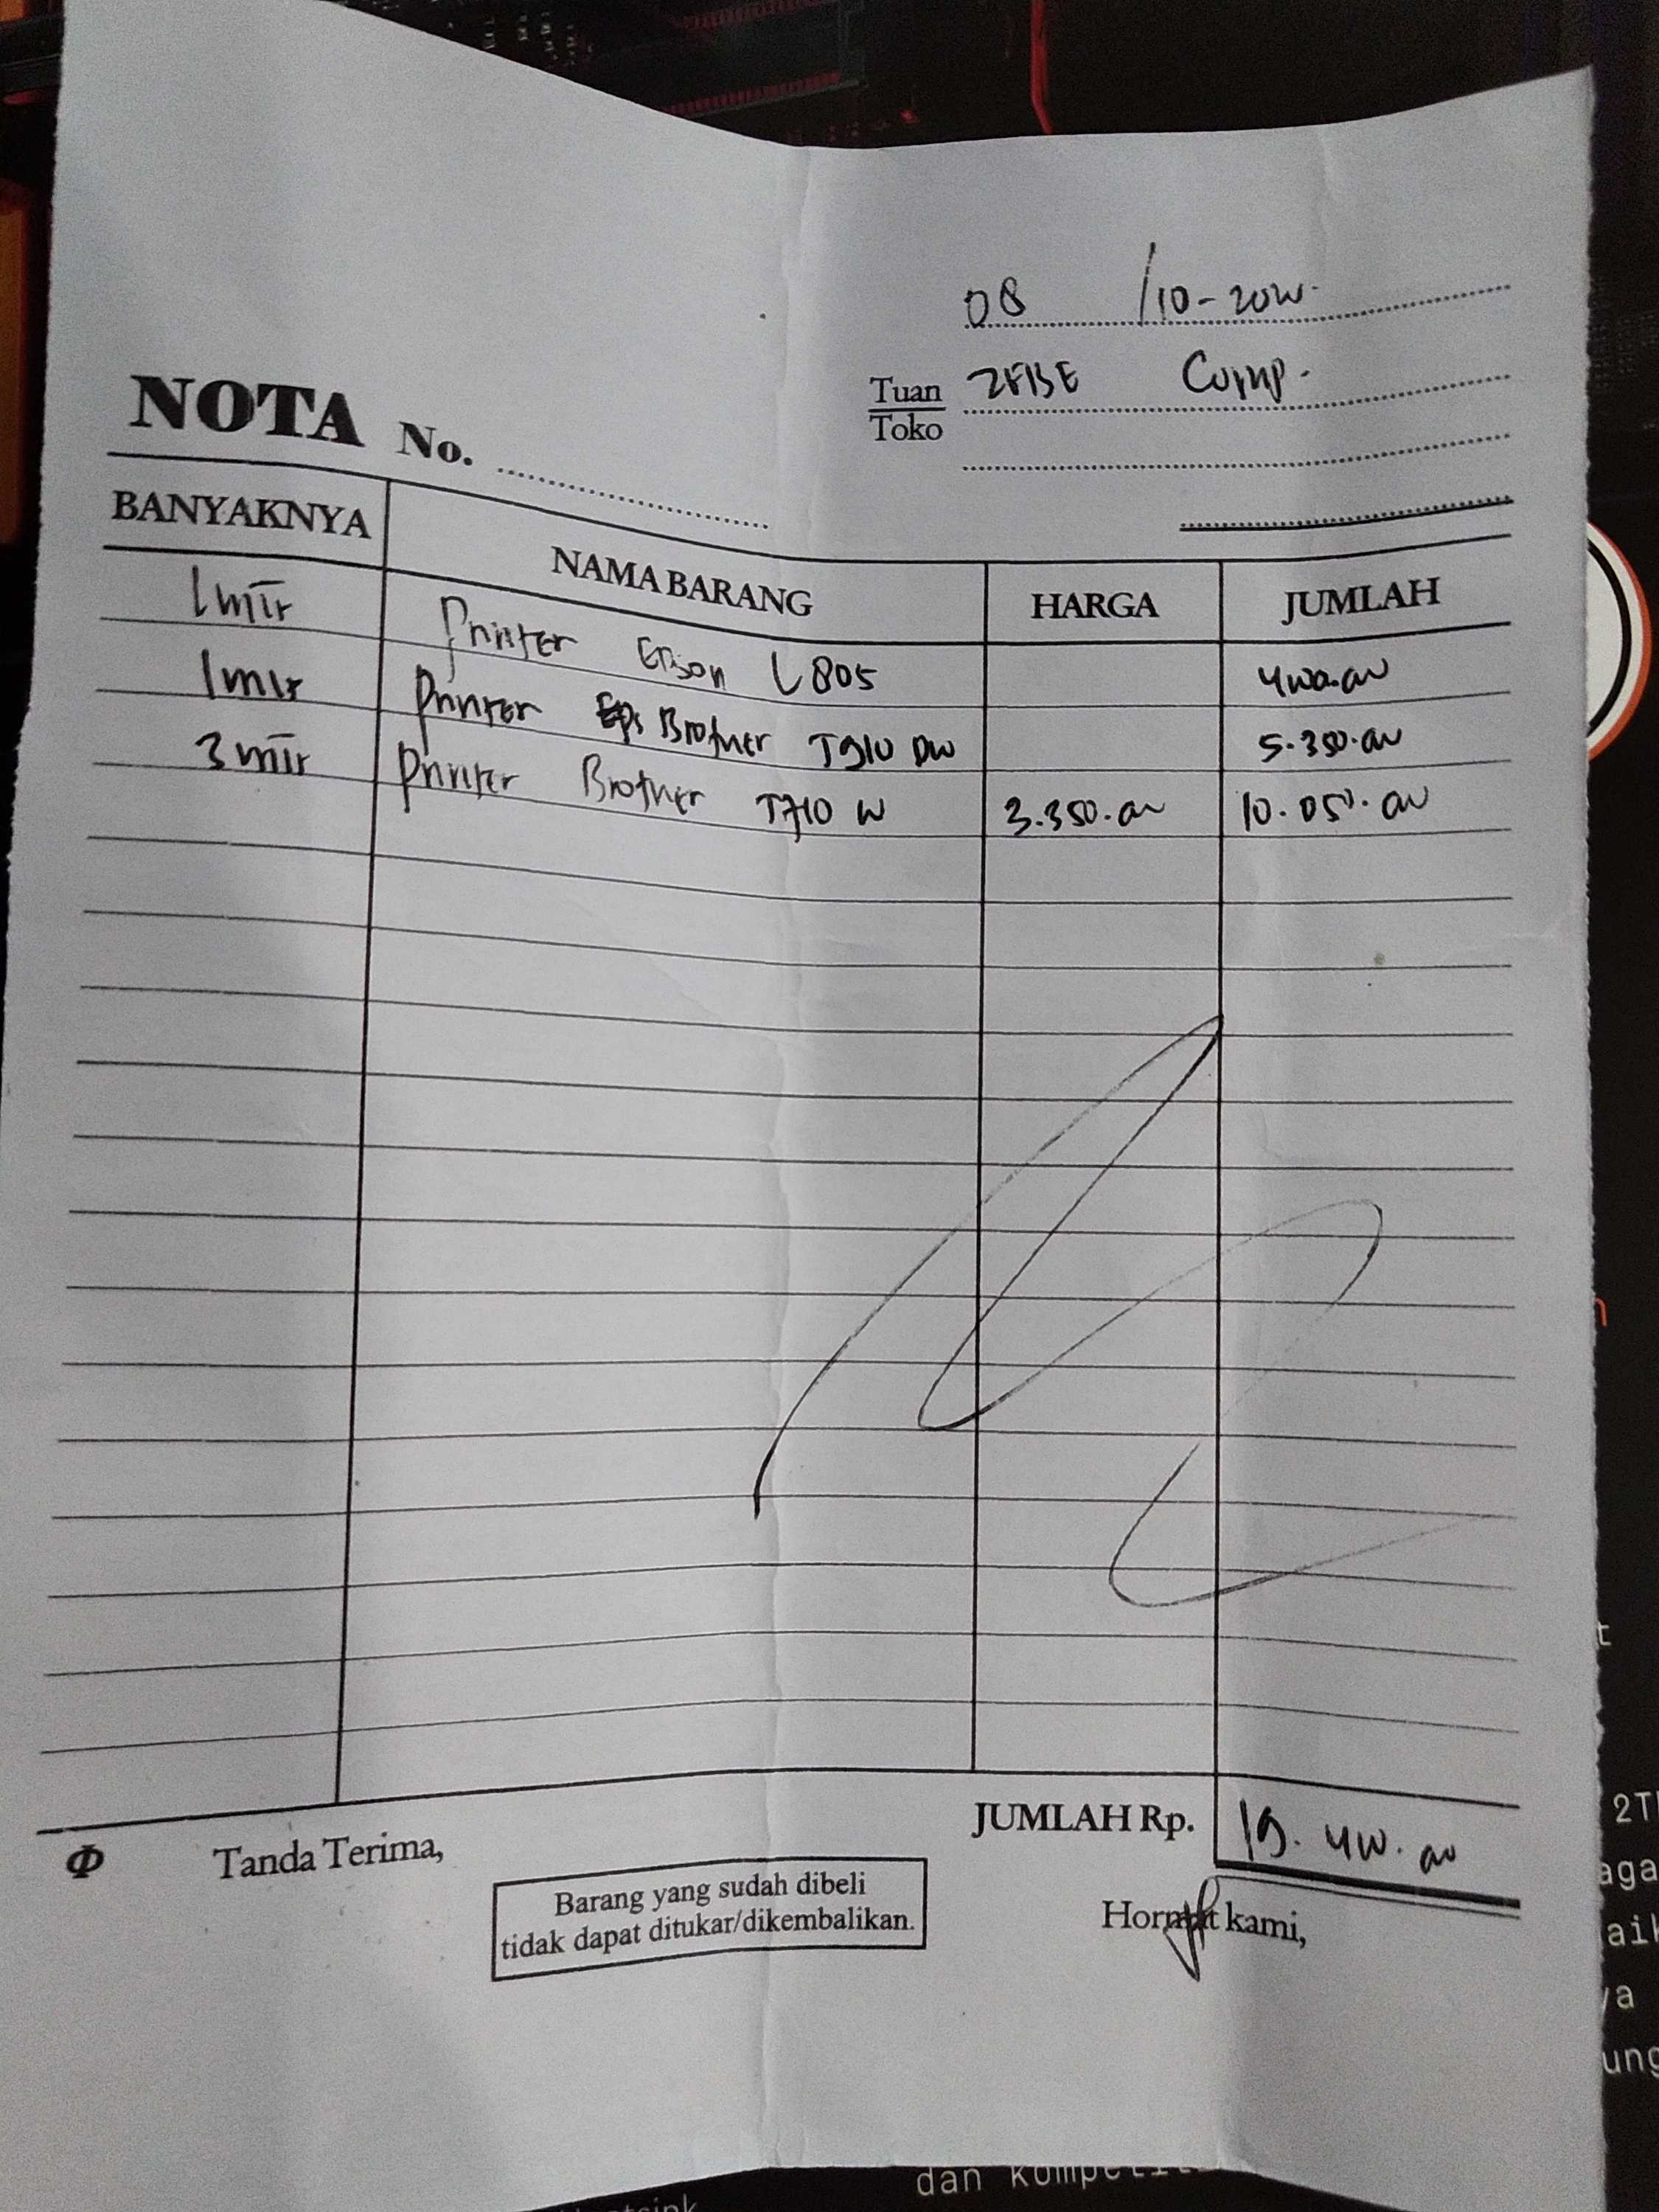 08 /10-2020.
Tuan
Toko
ZFISE Comp.
NOTA No.
BANYAKNYA NAMA BARANG HARGA JUMLAH
1 unit Printer Epson L805 400.00
1 unit Printer Brother T910 DW 5.350.00
3 unit Printer Brother T710 W 3.350.00 10.050.00
JUMLAH Rp. 19.400.00
Φ Tanda Terima,
Barang yang sudah dibeli
tidak dapat ditukar/dikembalikan.
Hormat kami,
2T
aga
aik
ya
ung
dan kompetit